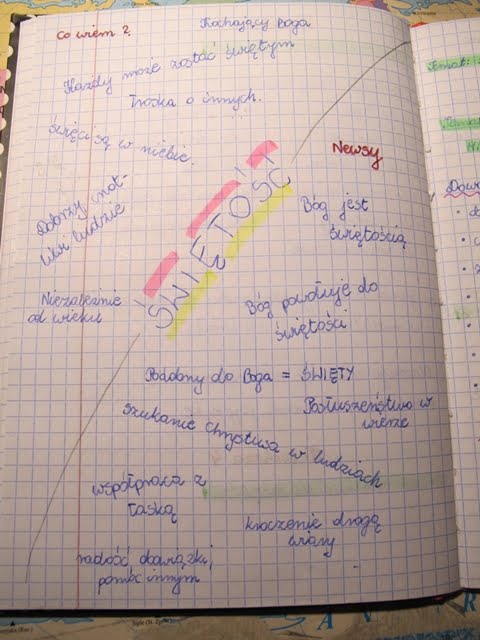 Co wiem?
Kochający Boga
Każdy może zostać świętym
Troska o innych.
święci są w niebie.
Dobrzy, mot-
liwi ludzie
Niezależnie
od wieku
ŚWIĘTOŚĆ
Newsy
Bóg jest
świętością
Bóg powołuje do
świętości
Podobny do Boga = ŚWIĘTY
Posłuszeństwo w
wierze
szukanie Chrystusa w ludziach
współpraca z
łaską
kroczenie drogą
wiary
radość, obowiązki,
pomóc innym
Temat: